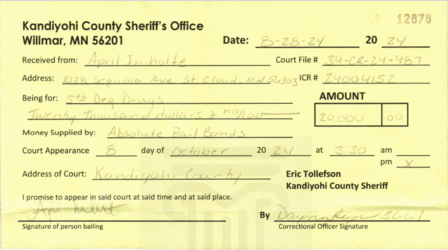 12878
Kandiyohi County Sheriff's Office
Willmar, MN 56201 Date: 8-28-24 20 24
Received from: April Imholte Court File # 34-CR-24-487
Address: 1028 Sequoia Ave St Cloud, MN 56303 ICR # 24004152
Being for: 5th Deg Drugs AMOUNT
Twenty Thousand dollars & no/100 20,000 00
Money Supplied by: Absolute Bail Bonds
Court Appearance 8 day of October 20 24 at 3:30 am
pm x
Address of Court: Kandiyohi County Eric Tollefson
Kandiyohi County Sheriff
I promise to appear in said court at said time and at said place.
By 3661
Signature of person bailing Correctional Officer Signature